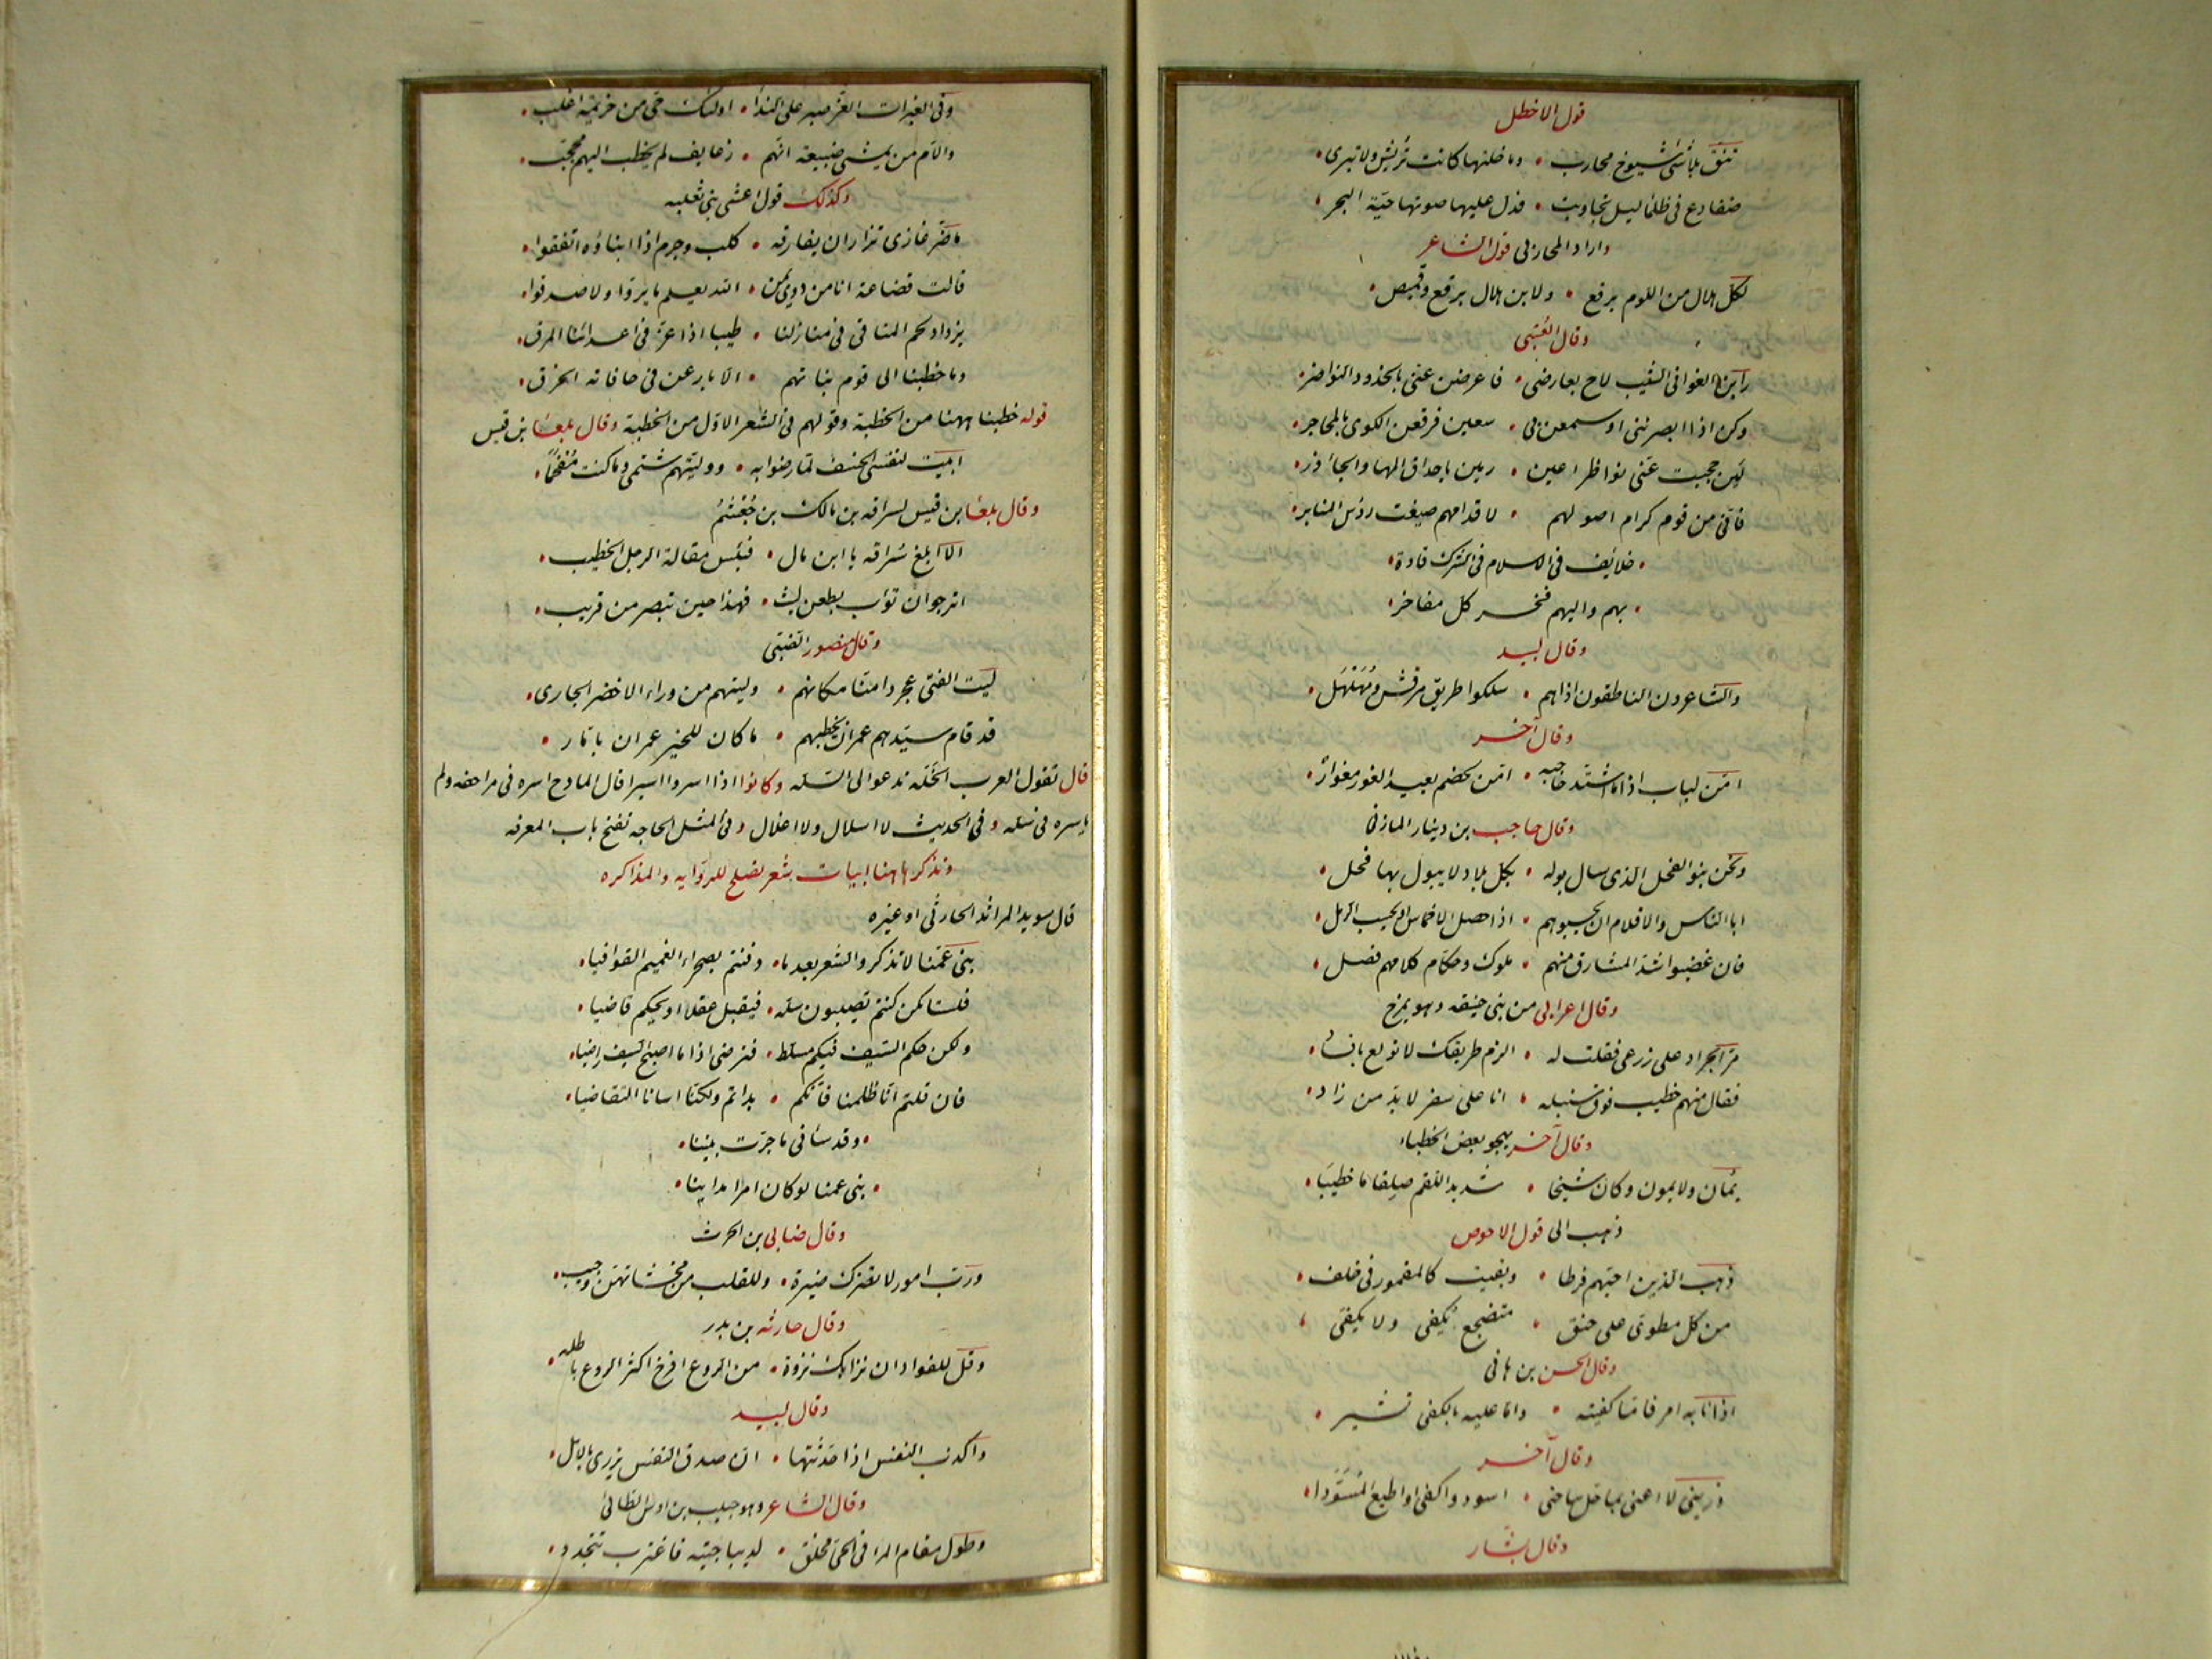 قول الاخطل
تنق بلا شئ شيوخ محارب • وما خلتها كانت تريش ولا تبرى •
ضفادع فى ظلماليل تجاوبت • فدل عليها صوتها حيّة البحر •
واراد المحاربى قول الشاعر
لكلّ هلال من اللوم برقع • ولابن هلال برقع وقميص •
وقال العُتبى
راين الغوانى الشيب لاح بعارضى • فاعرضن عنى بالخدود النواضر •
وكن اذا ابصرننى او سمعن بى • سعين فرقعن الكوى بالمحاجر •
لئن حجبت عنّى نواظر اعين • رمين باحداق المها والجاٰذر •
فانّى من قوم كرام اصولهم • لاقدامهم صيغت رؤس المنابر •
• خلائف فى الاسلام فى الشرك قادة •
• بهم واليهم فخر كل مفاخر •
وقال لبيد
والشاعرون الناطقون اراهم • سلكوا طريق مرقش ومهلهل •
وقال آخر
امّن لباب اذا ما اشتدّ حاجبه • امّن لخصم بعيد الغور مغوار •
وقال حاجب بن دينار المازنى
ونحن بنو الفحل الذى سال بوله • بكلّ بلاد لا يبول بها فحل •
ابا الناس والاقلام ان يحسبوهم • اذا حصل الاخماس او يحسب الرمل •
فان غضبوا شدّ المشارق منهم • ملوك وحكّام كلامهم فصل •
وقال اعرابى من بنى حنيفه وهو يمزح
مرّ الجراد على زرعى فقلت له • الزم طريقك لا تولع بافساد •
فقال منهم خطيب فوق سنبله • انا على سفر لا بدّ من زاد •
وقال آخر يهجو بعض الخطباء
يُمان ولا يمون وكان شيخا • شديد اللقم صلقاما خطيبا •
ذهب الى قول الاحوص
ذهب الذين احبّهم فرطا • وبقيت كالمقمور فى خلف •
من كلّ مطوىّ على حنق • متضجع يُكفى ولا يكفى •
وقال الحسن بن هانى
اذا نابه امر فاما كفيته • واما عليه بالكفى تشير •
وقال آخر
ذرينى لا اعنى بما حل ساحتى • اسود واكفى او اطيع المُسَوَّدا •
وقال بشار
وفى الغبرات الغرّ صبر على الندا • اولئك حى من خزيمه اغلب •
والام من يمشى ضبيعه انّهم • زعانف لم يخطب اليهم محجّب •
وكذلك قول اعشى بنى ثعلبه
ما ضرّ غازى نزار ان يفارقه • كلب وجرم اذا ابناؤه اتفقوا •
قالت قضاعة انا من ذوى يمن • الله يعلم ما برّوا ولا صدقوا •
يزداد لحم المناقى فى منازلنا • طيبا اذا عزّ فى اعدائنا المرق •
وما خطبنا الى قوم بناتهم • الا بارعن فى حافاته الخرق •
قوله خطبنا ههنا من الخطبة وقولهم فى الشعر الاوّل من الخطبة وقال بلعا بن قيس
ابيت لنفسى الخسف لما رضوا به • ووليتهم شتمى وما كنت مُفحَماً •
وقال بلعا بن قيس لسراقه بن مالك بن جُعشُمُ
الا ابلغ سُراقه يا ابن مال • فبئس مقالة الرجل الخطيب •
اترجو ان تؤب بظعن ليث • فهذا حين تبصر من قريب •
وقال منصور الضبّى
ليت الفتى عجردا منّا مكانهم • وليتهم من وراء الاخضر الجارى •
قد قام سيّدهم عمران يخطبهم • ما كان للخير عمران بامّار •
قال تقول العرب الخَلّه تدعو الى السَّلّه وكانوا اذا اسروا اسيرا قال المادح اسره فى مزاحفه ولم
ياسره فى سَلّه وفى الحديث لا اسلال ولا اغلال وفى المثل الحاجه تفتح باب المعرفه
ونذكر هاهنا ابيات شعر تصلح للرّوايه والمذاكره
قال سويد المراثد الحارثى او غيره
بنى عمّنا لا تذكروا الشعر بعدما • دفنتم بصحراء الغميم القوافيا •
فلسنا كمن كنتم تصيبون سلّه • فيقبل عقلا او يحكّم قاضيا •
ولكن حكم السّيف فيكم مسلّط • فنرضى اذا ما اصبح السّيف راضيا •
فان قلتم انّا ظلمنا فانّكم • بدأتم ولكنّا اسانا التقاضيا •
• وقد ساٰنى ما جرّت بيننا •
• بنى عمنا لو كان امرا مدانيا •
وقال ضابى بن الحرث
وربّ امور لا تضرك ضيرة • وللقلب من مخشاتهنّ وجيب •
وقال حارثه بن بدر
وقل للفؤاد ان نزابك نزوة • من الروع افرخ اكثر الروع باطله •
وقال لبيد
واكذب النفس اذا حدّثتها • انّ صدق النفس يزرى بالامل •
وقال الشاعر وهو حبيب بن اوس الطائى
وطول مقام المرٰ فى الحىّ مخلق • لديباجتيه فاغترب تتجدد •